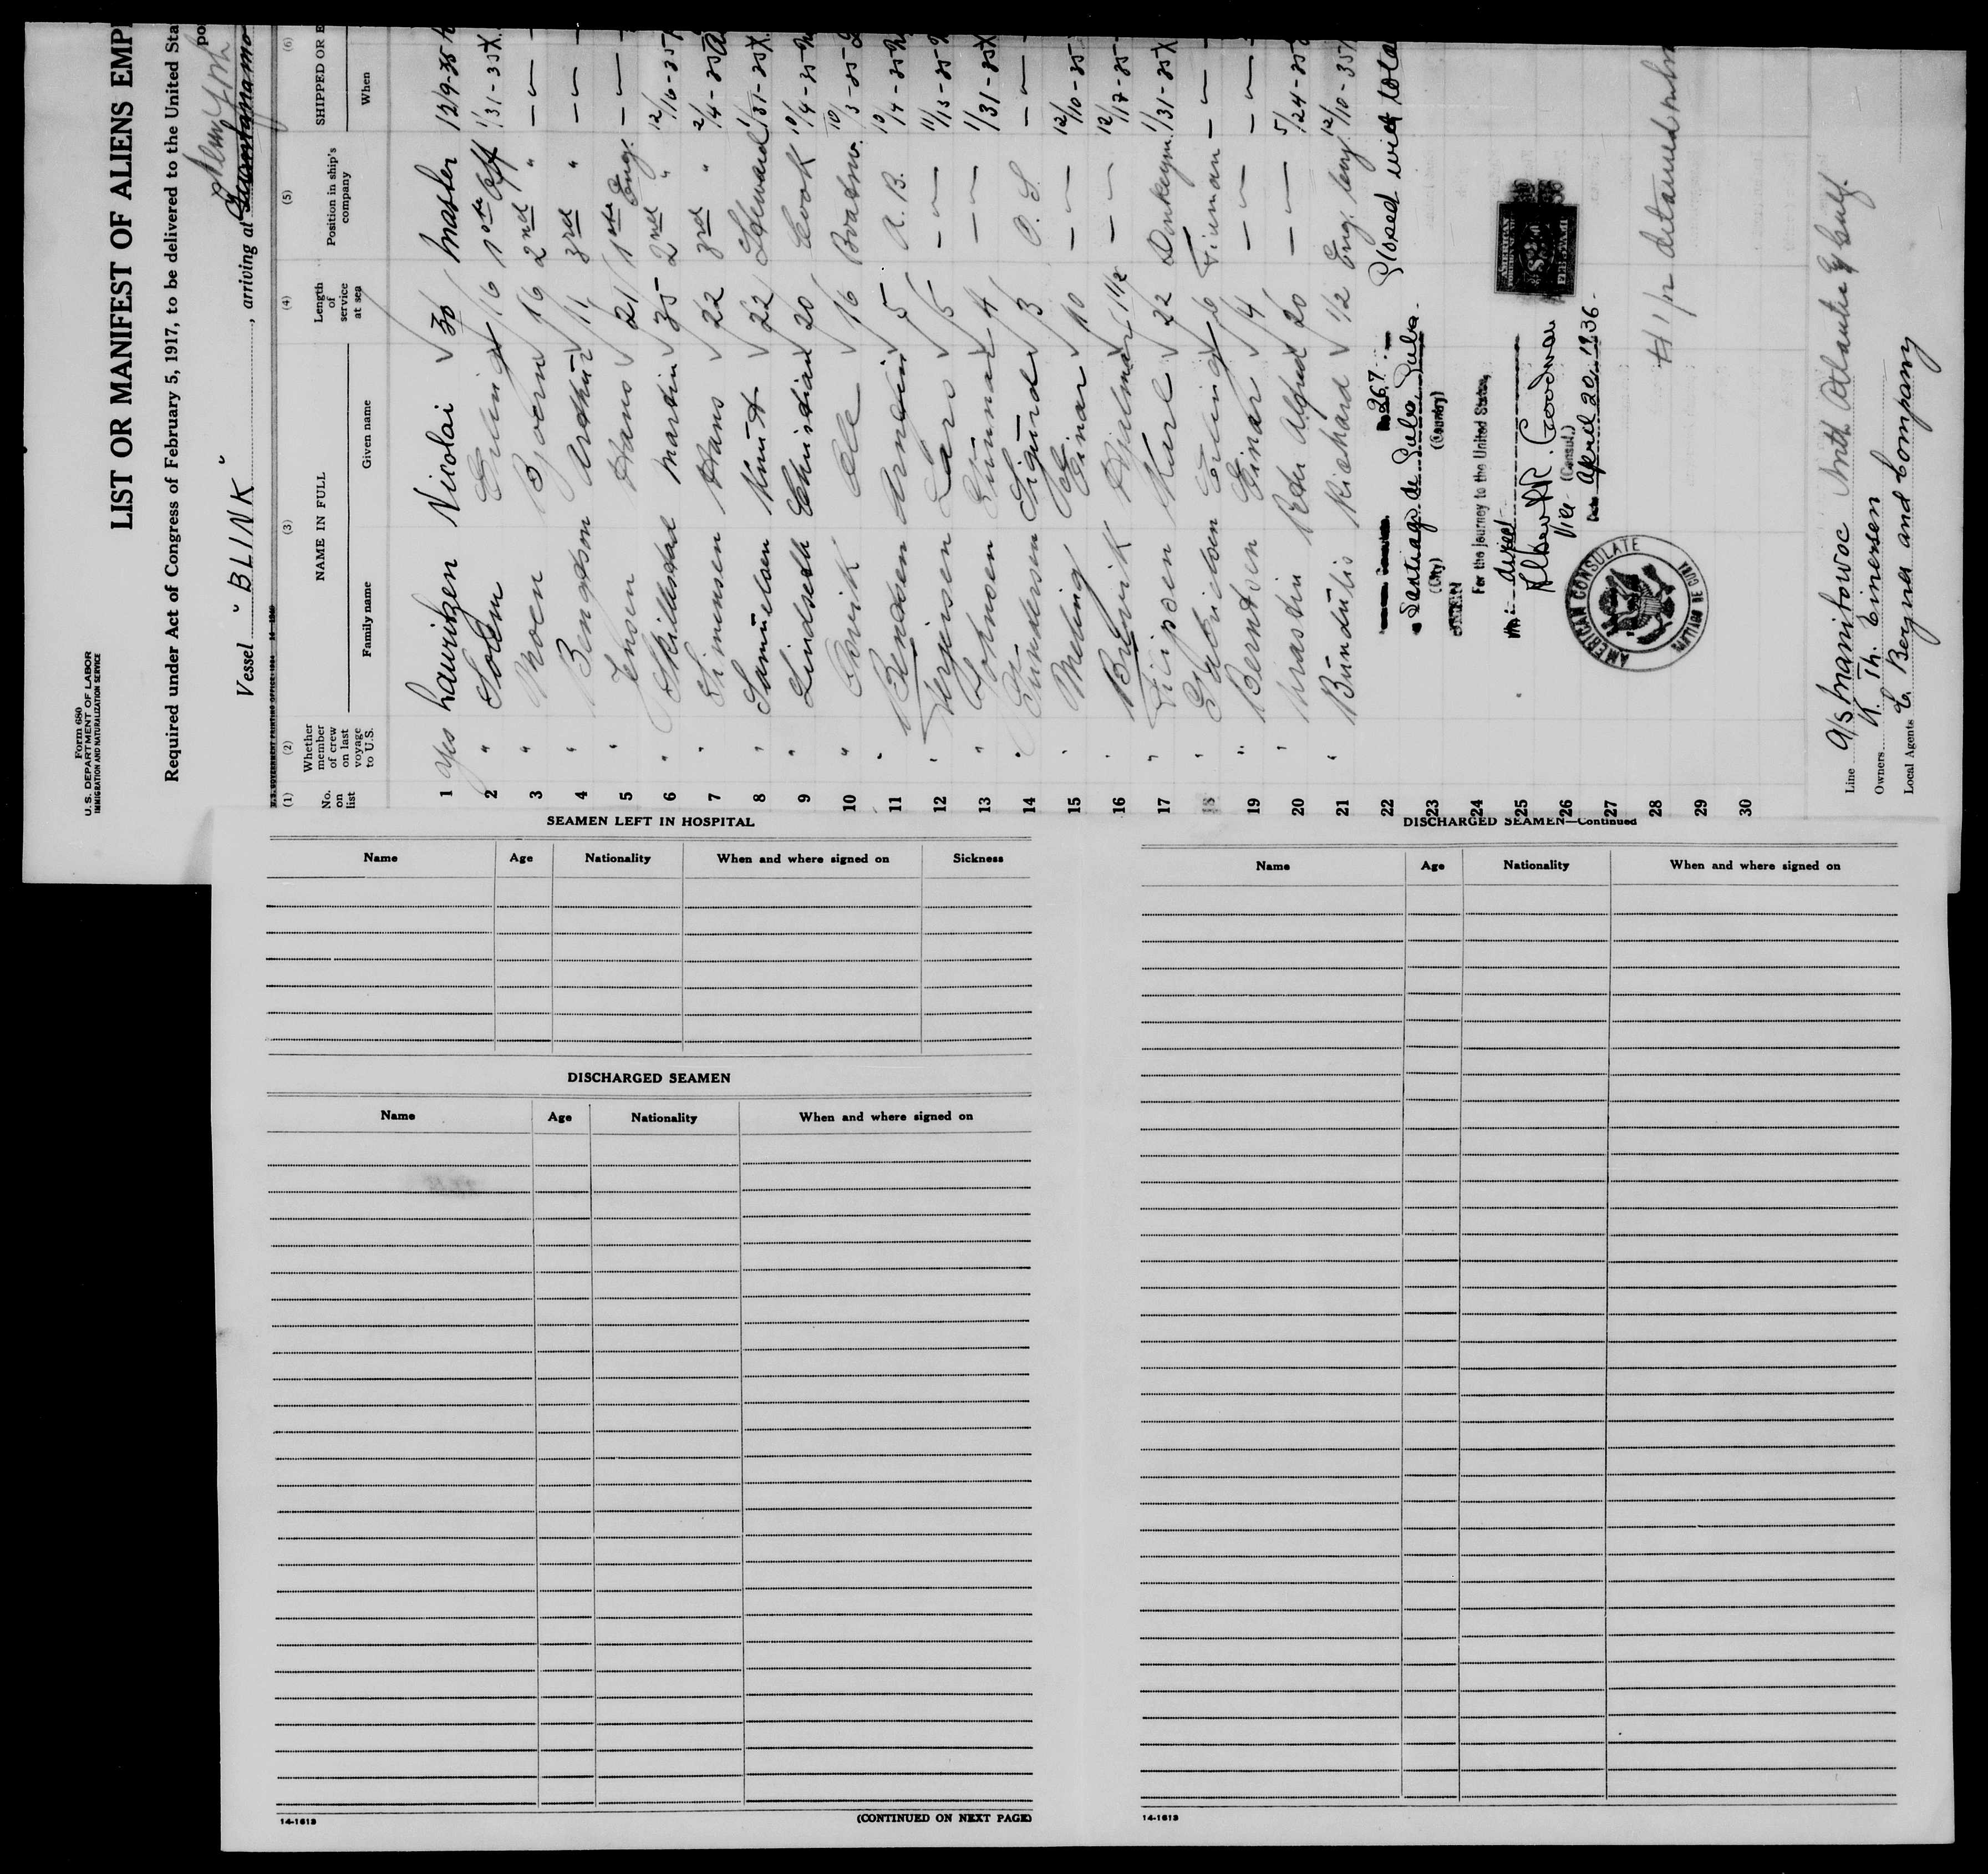 Form 680
U. S. DEPARTMENT OF LABOR
IMMIGRATION AND NATURALIZATION SERVICE
LIST OR MANIFEST OF ALIENS EMP
Required under Act of Congress of February 5, 1917, to be delivered to the United Sta
Vessel "BLINK", arriving at
(1) (2) (3) (4) (5) (6)
No. on list Whether member of crew on last voyage to U.S. NAME IN FULL Length of service at sea Position in ship's company SHIPPED OR E
Family name Given name When
1 yes Lauritzen Nicolai 30 Master 12/9-35
2 " Solem Erling 16 1ste Off 1/31-35
3 " Moen Bjoern 16 2nd " — " —
4 " Bengtson Arthur 11 3rd " — " —
5 " Jensen Hans 21 1ste Eng. — " —
6 " Skillesdal Martin 35 2nd " 12/16-35
7 " Simensen Hans 22 3rd " 2/4-35
8 " Samuelsen Knut 22 Steward 1/31-35
9 " Lindseth Christian 20 Cook 10/4-35
10 " Orvik Ole 16 Boatsw. 10/3-35
11 " Bendixen 5 A. B. 10/4-35
12 " Lars 5 — " — 11/13-35
13 " Johnsen Gunnar 4 — " — 1/31-35
14 " Gundersen Sigurd 3 O. S. — " —
15 " Meling Einar 10 — " — 12/10-35
16 " Brevik Hjalmar 1 1/2 — " — 12/17-35
17 " Filipsen Karl 22 Donkeym. 1/31-35
18 " Erling 6 Fireman — " —
19 " Berntsen Einar 4 — " — — " —
20 " Peder Alfred 20 — " — 5/24-35
21 " Bundulis Richard 1/2 Eng. boy 12/10-35
22 No 267 Closed with total
23 Santiago de Cuba, Cuba
(City) (Country)
24 For the journey to the United States,
25 direct
Albert R. Goodman
26 Vice (Consul.)
27 Date April 20, 1936.
28
29
30
AMERICAN CONSULATE
SANTIAGO DE CUBA
AMERICAN
$2
Line A/S Manitowoc North Atlantic & Gulf.
Owners K. Th. Einersen
Local Agents E. Beyner and Company
SEAMEN LEFT IN HOSPITAL
Name Age Nationality When and where signed on Sickness
DISCHARGED SEAMEN
Name Age Nationality When and where signed on
14-1613 (CONTINUED ON NEXT PAGE)
DISCHARGED SEAMEN—Continued
Name Age Nationality When and where signed on
14-1613